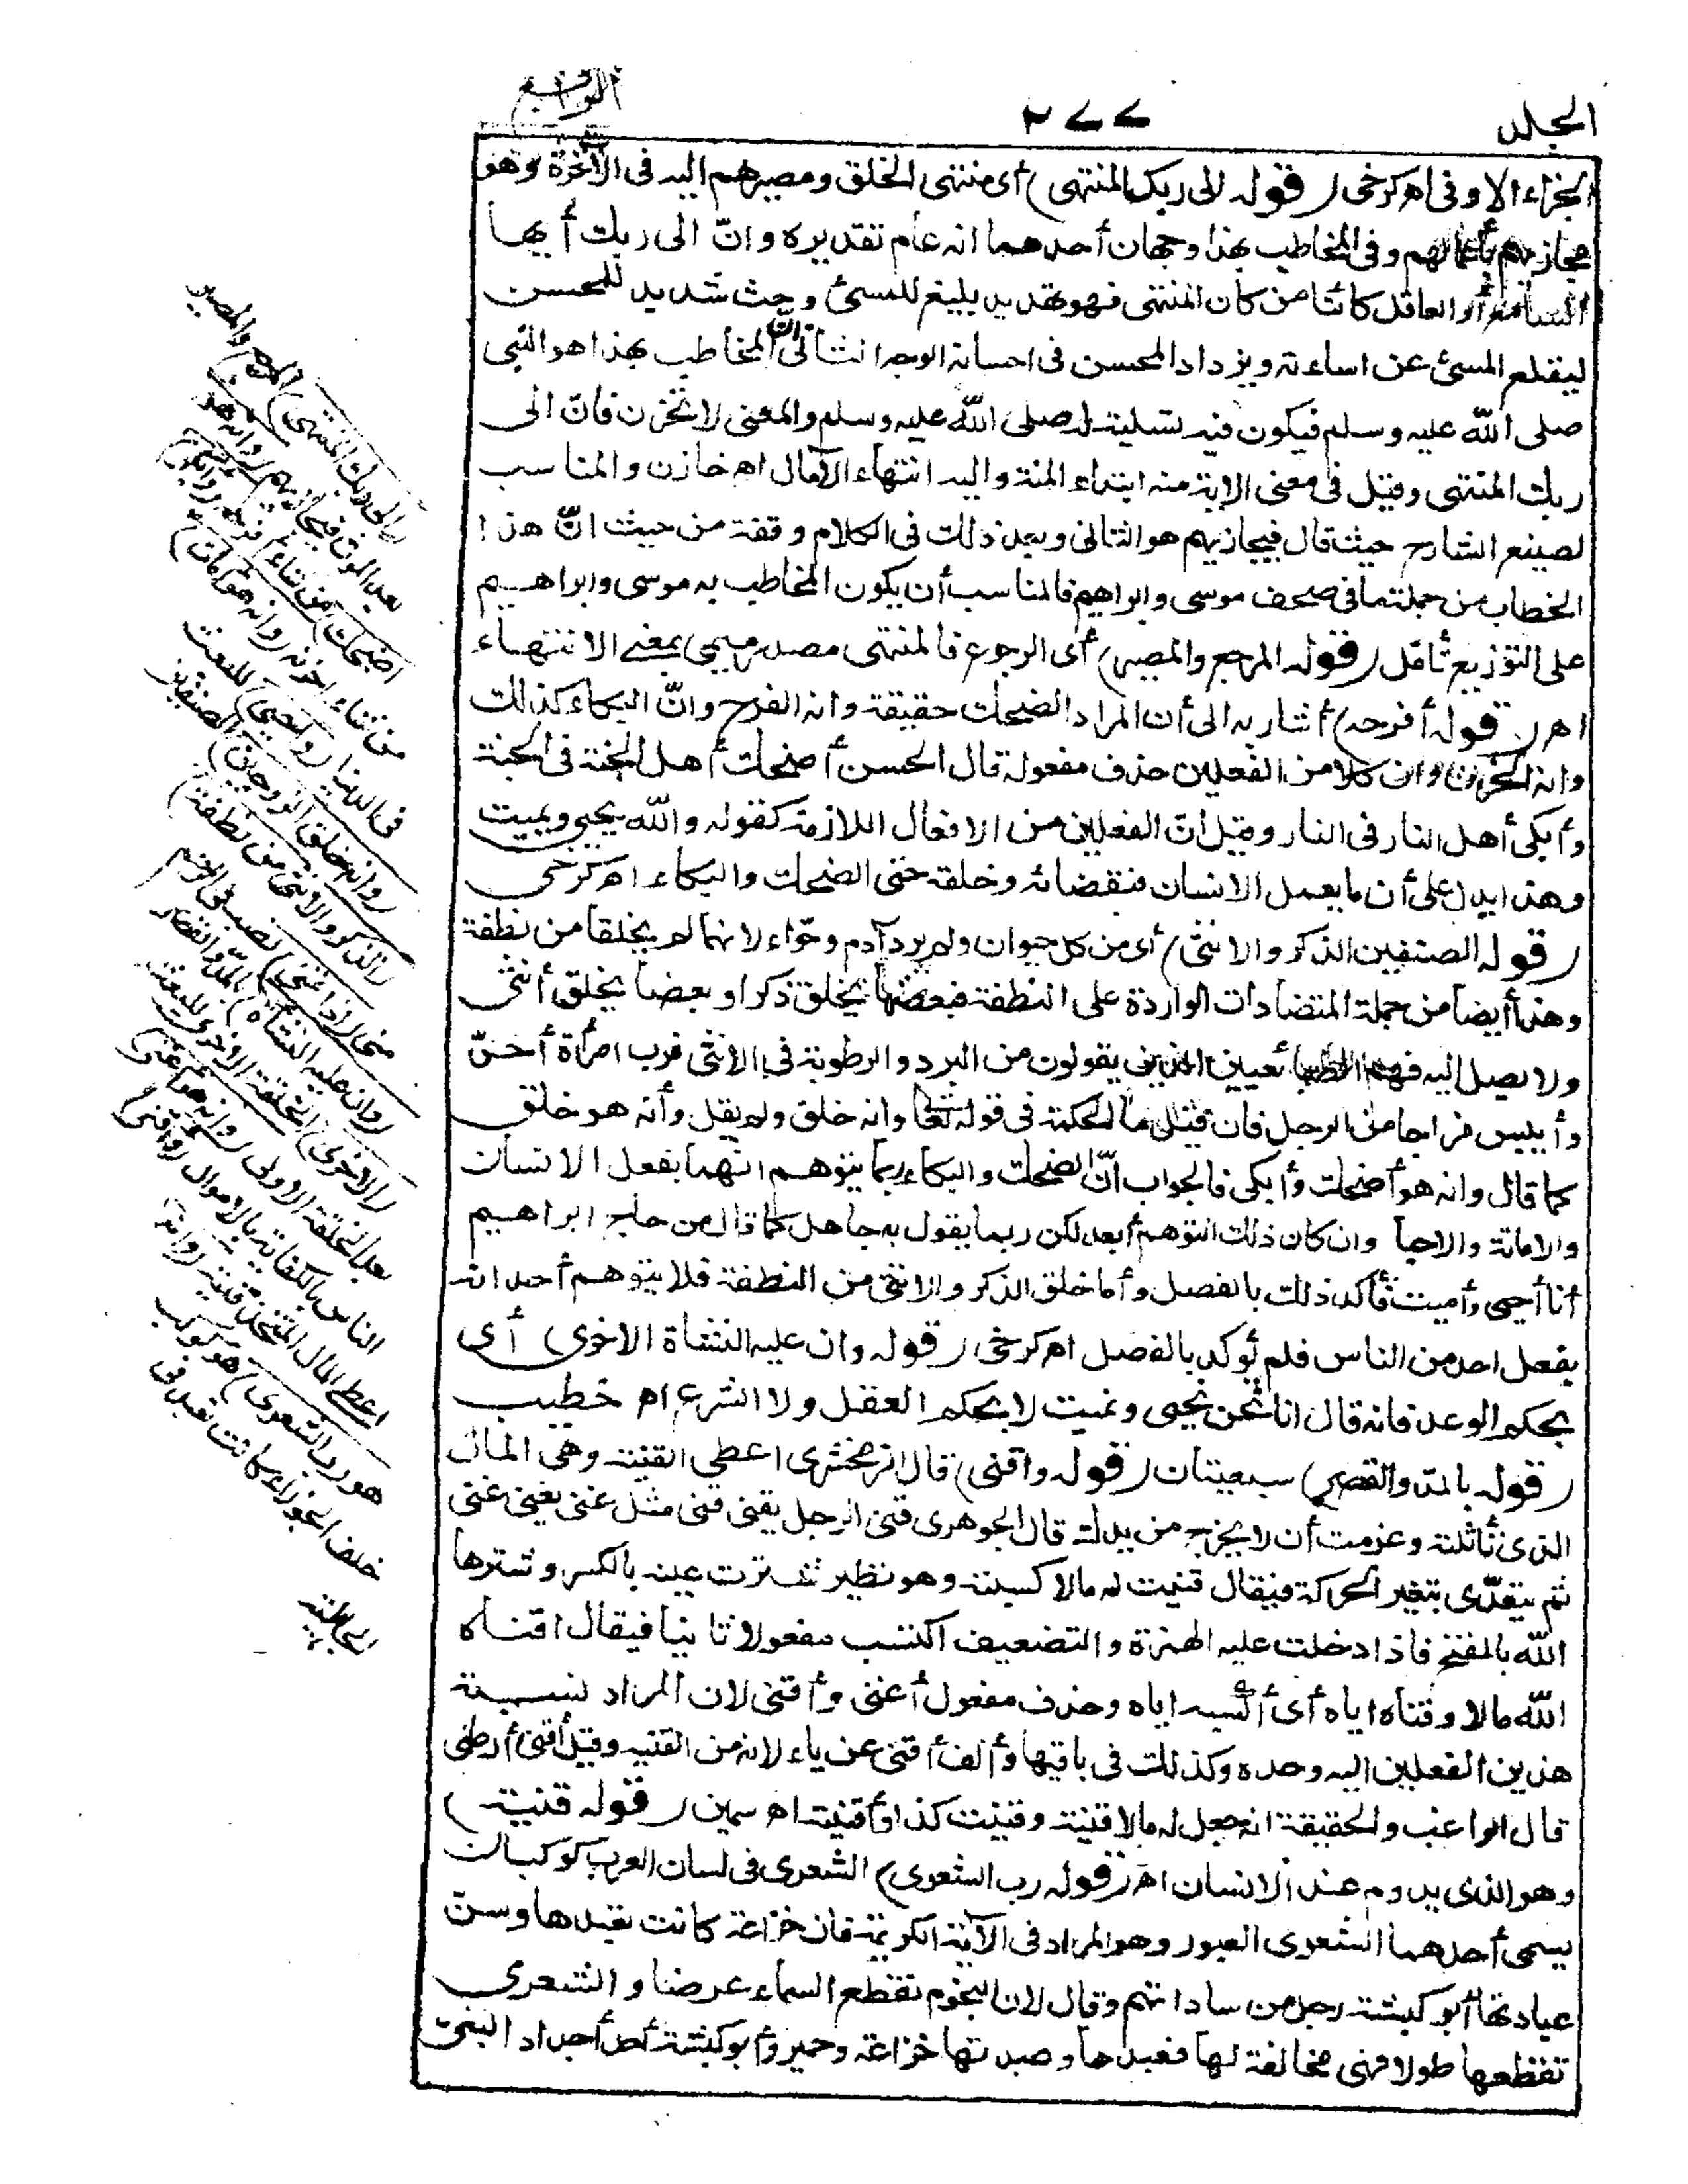 الجلد
٢٧٧
الرابع
الجزاء الاوفى اه كرخى (قوله الى ربك المنتهى) أى منتهى الخلق ومصيرهم اليه فى الآخرة وهو
مجازيهم بأعمالهم وفى المخاطب بهذا وجهان أحدهما انه عام تقديره وانّ الى ربك أيها
السامع أو العاقل كائنا من كان المنتهى فهو تهديد بليغ للمسئ وحث شديد للمحسن
ليقلع المسئ عن اساءته ويزداد المحسن فى احسانه الوجه الثانى انّ المخاطب بهذا هو النبى
صلى الله عليه وسلم فيكون فيه تسلية له صلى الله عليه وسلم والمعنى لا تحزن فانّ الى
ربك المنتهى وقيل فى معنى الاية منه ابتداء المنة واليه انتهاء الآمال اه خازن والمناسب
لصنيع الشارح حيث قال فيجازيهم هو الثانى وبعد ذلك فى الكلام وقفة من حيث انّ هذا
الخطاب من جملة ما فى صحف موسى وابراهيم فالمناسب أن يكون المخاطب به موسى وابراهيم
على التوزيع تأمّل (قوله المرجع والمصير) أى الرجوع فالمنتهى مصدر ميمى بمعنى الانتهاء
اه (قوله أفرحه) أشار به الى أن المراد الضحك حقيقة وانه الفرح وانّ البكاء كذلك
وانه الحزن وان كلا من الفعلين حذف مفعوله قال الحسن أضحك أهل الجنة فى الجنة
وأبكى أهل النار فى النار وقيل أنّ الفعلين من الافعال اللازمة كقوله والله يحيى ويميت
وهذا يدل على أن ما يعمل الانسان فبقضائه وخلقه حتى الضحك والبكاء اه كرخى
(قوله الصنفين الذكر والانثى) أى من كل حيوان ولم يرد آدم وحوّاء لانهما لم يخلقا من نطفة
وهذا أيضا من جملة المتضادات الواردة على النطفة فبعضها يخلق ذكرا وبعضا يخلق أنثى
ولا يصل اليه فهم الطبائعيين الذين يقولون من البرد والرطوبة فى الانثى فرب امرأة أحرّ
وأيبس مزاجا من الرجل فان قيل ما الحكمة فى قوله تعا وانه خلق ولم يقل وأنه هو خلق
كما قال وانه هو أضحك وأبكى فالجواب انّ الضحك والبكاء ربما يتوهم انهما بفعل الانسان
والاماتة والاحيا وان كان ذلك التوهم أبعد لكن ربما يقول به جاهل كما قال من حاج ابراهيم
أنا أحيى وأميت فأكد ذلك بالفصل وأما خلق الذكر والانثى من النطفة فلا يتوهم أحد انه
بفعل احد من الناس فلم يؤكد بالفصل اه كرخى (قوله وان عليه النشأة الاخرى) أى
بحكم الوعد فانه قال انا نحن نحيى ونميت لا بحكم العقل ولا الشرع اه خطيب
(قوله بالمدّ والقصر) سبعيتان (قوله واقنى) قال الزمخشرى اعطى القنية وهى المال
الذى تأثلته وعزمت أن لا يخرج من يدك قال الجوهرى قنى الرجل يقنى قنى مثل غنى يغنى غنى
ثم يتعدّى بتغير الحركة فيقال قنيت له مالا كسبته وهو نظير شترت عينه بالكسر وشترها
الله بالفتح فاذا دخلت عليه الهمزة والتضعيف اكتسب مفعولا ثانيا فيقال اقناه
الله مالا وقناه اياه أى أكسبه اياه وحذف مفعول أغنى وأقنى لان المراد نسبة
هذين الفعلين اليه وحده وكذلك فى باقيها وألف أقنى عن ياء لانه من القنية وقيل أقنى أرضى
قال الراغب والحقيقة انه جعل له مالا قنية وقنيت كذا وأقنيته اه سمين (قوله قنية)
وهو الذى يدوم عند الانسان اه (قوله رب الشعرى) الشعرى فى لسان العرب كوكبان
يسمى أحدهما الشعرى العبور وهو المراد فى الآية الكريمة فان خزاعة كانت تعبدها وسنّ
عبادتها أبو كبشة رجل من ساداتهم وقال لان النجوم تقطع السماء عرضا والشعرى
تقطعها طولا فهى مخالفة لها فعبدها وعبدتها خزاعة وحمير وأبو كبشة أحد أجداد النبى
(الى ربك المنتهى) المرجع والمصير
بعد الموت فيجازيهم (وانه هو
اضحك) من شاء أفرحه (وأبكى)
من شاء احزنه (وانه هو أمات)
فى الدنيا (وأحيى) للبعث
(وانه خلق الزوجين) الصنفين
(الذكر والانثى من نطفة)
منى (اذا تمنى) تصب فى الرحم
(وان عليه النشأة) بالمدّ والقصر
(الاخرى) الخلقة الاخرى للبعث
بعد الخلقة الاولى (وانه هو أغنى)
الناس بالكفاية بالاموال (واقنى)
اعطى المال المتخذ قنية (وانه
هو رب الشعرى) هو كوكب
خلف الجوزاء كانت تعبد فى
الجاهلية